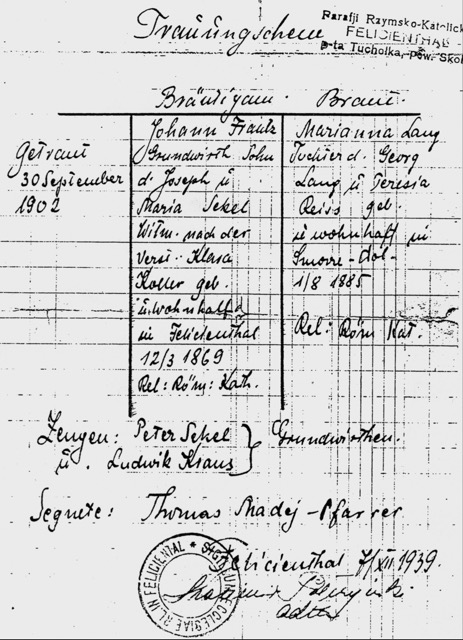 Trauungschein
Parafji Rzymsko-Katolick
FELICIENTHAL
p-ta Tucholka, pow. Skol
Bräutigam. Braut.
Getraut
30 September
1902
Johann Frantz
Grundwirth Sohn
d. Joseph u
Maria Sekel
Witw. nach der
verst. Klara
Koller geb.
u. wohnhaft
in Felicienthal
12/3 1869
Rel: Röm: Kath.
Marianna Lang
Tochter d. Georg
Lang u Teresia
Reiss geb
u wohnhaft in
Smorze-Dol-
1/8 1885
Rel: Röm Kat.
Zeugen: Peter Sekel } Grundwirthen.
u. Ludwik Kraus
Segnete: Thomas Madej - Pfarrer
Felicienthal 7/XII. 1939.
ECCLESIAE R. L. IN FELICIENTAL *